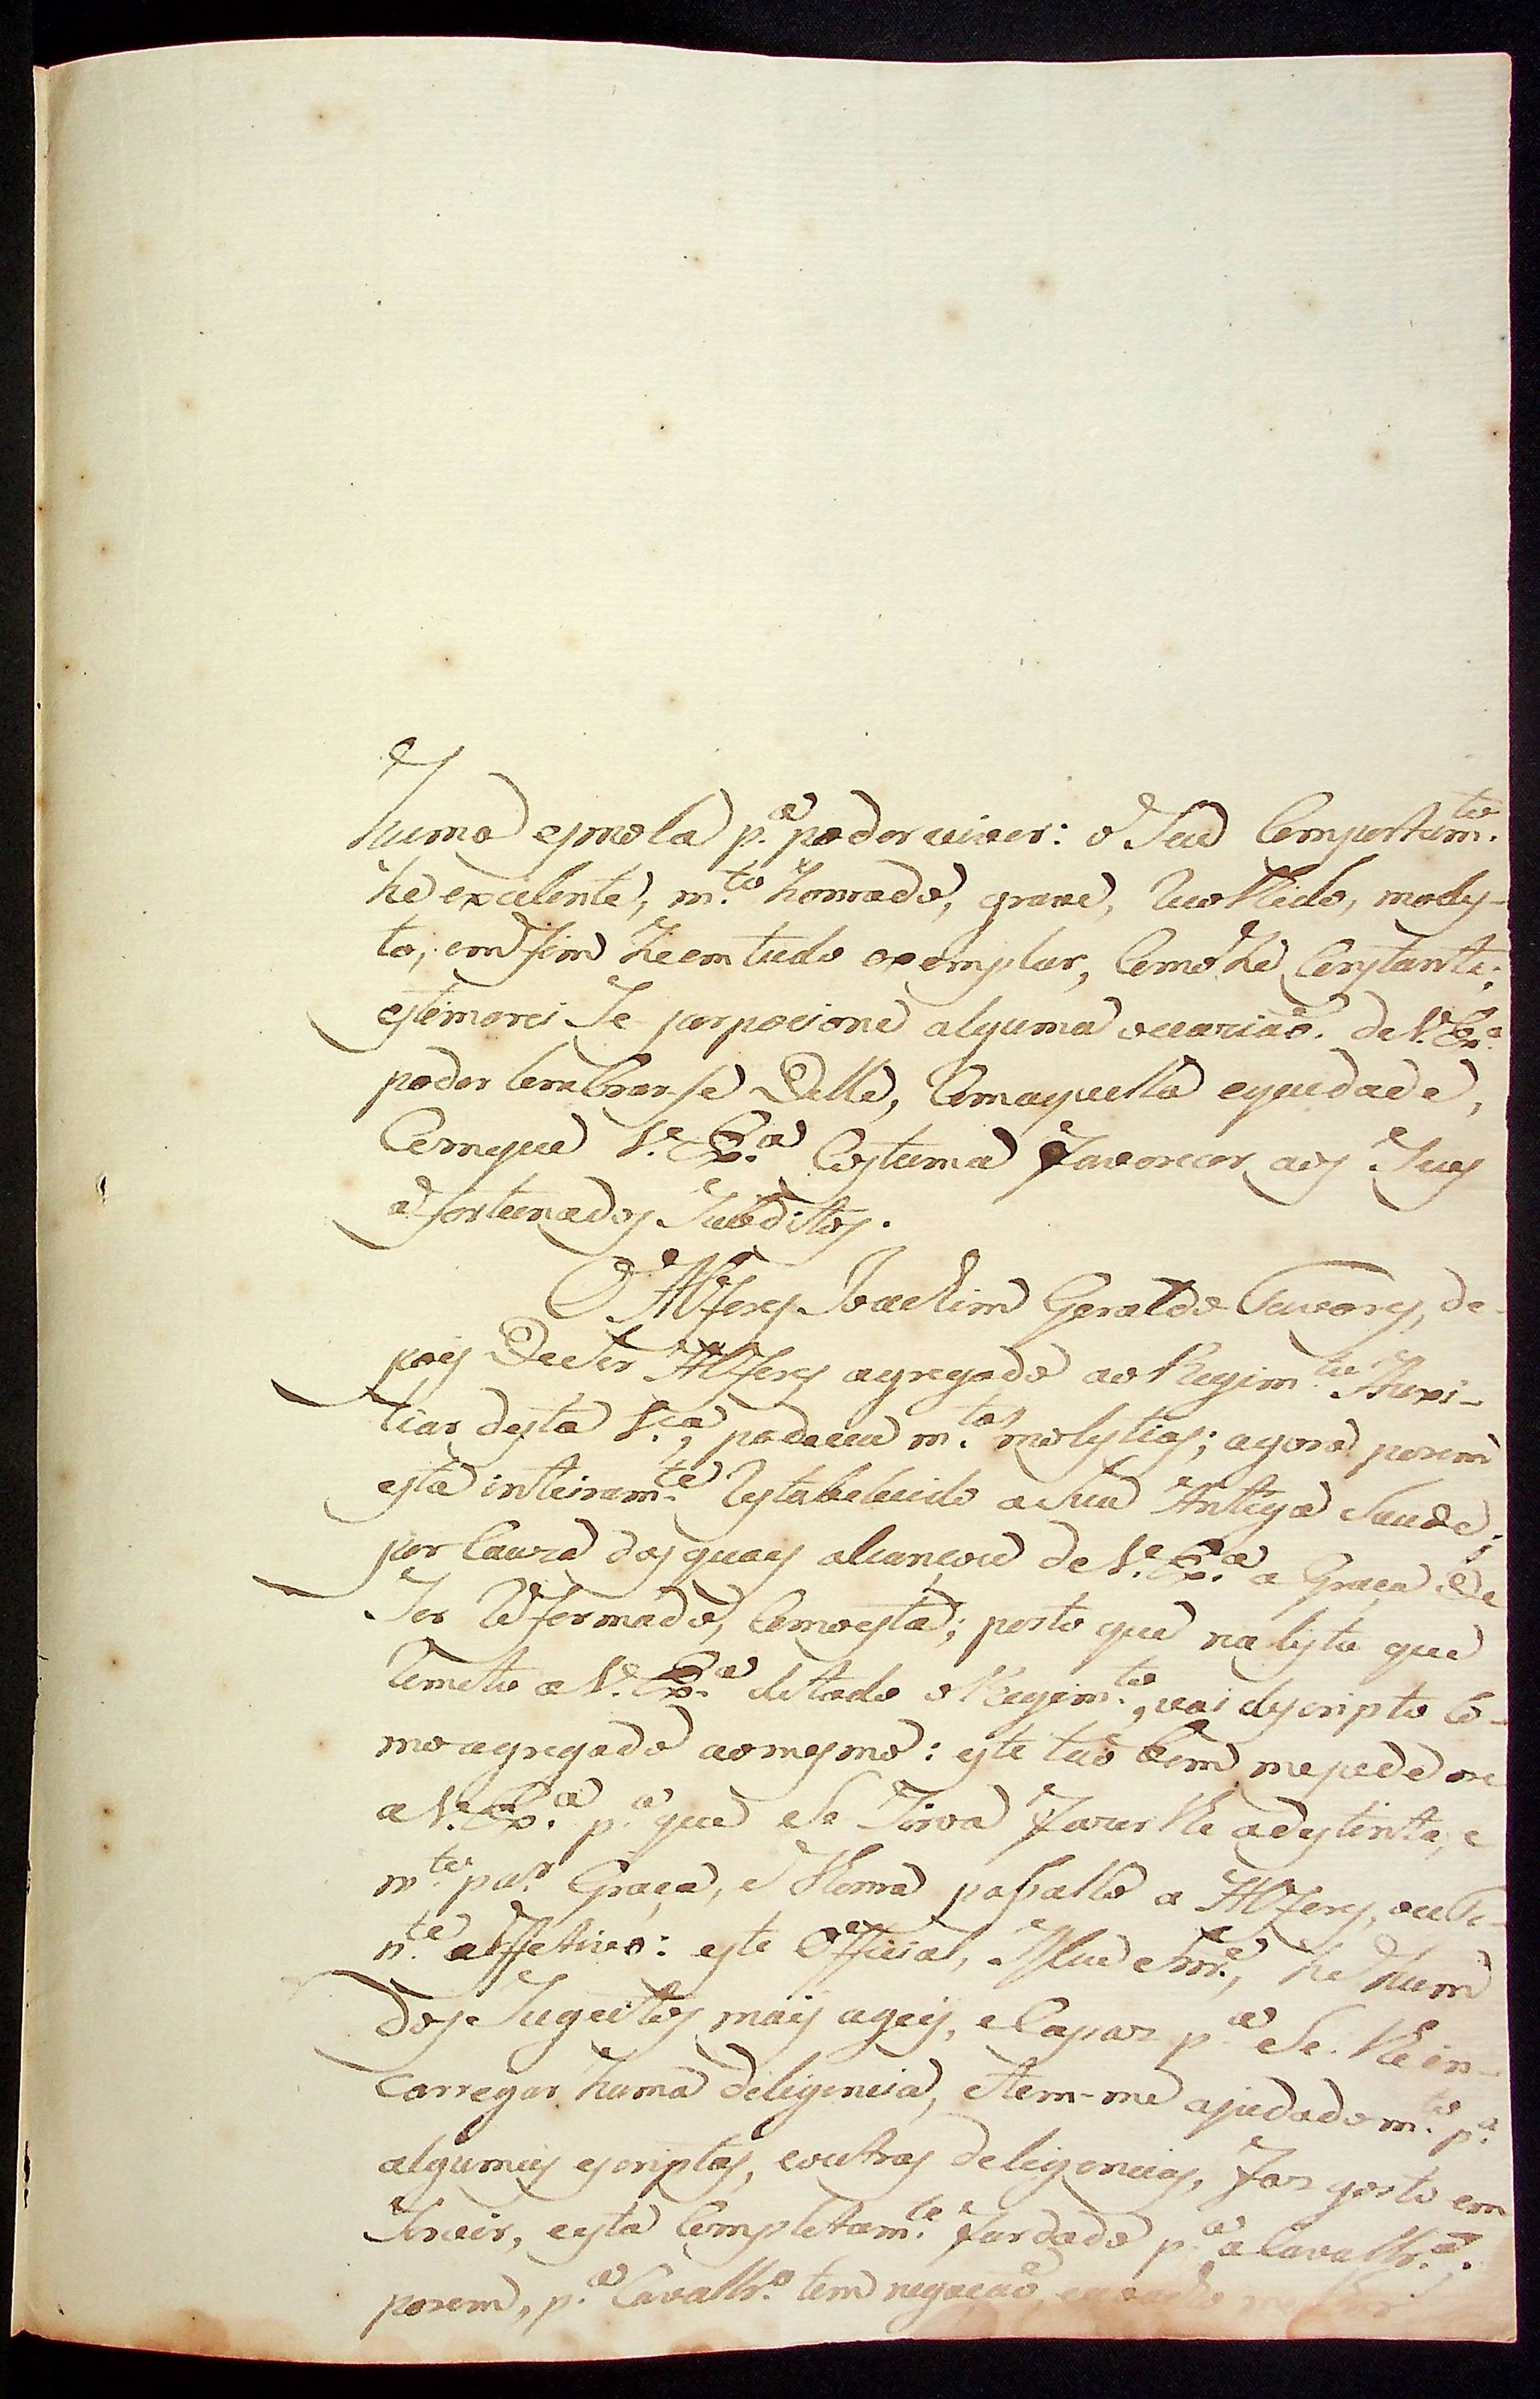 huma esmola p.ª poder viver: o Seu Comportam.to
he excelente, m.to honrado, grave, Recolhido, modes-
to, em fim he em tudo exemplar, Como he Constante;
estimarei Se porpocione alguma occazião. de V. Ex.ª
poder lembrar-se Delle, Com aquella equidade,
Com que V. Ex.ª Costuma favorecer aos Seus
afortunados Subditos.
O Alferes Joackim Geraldo Tavares, de-
pois De Ser Alferes agregado ao Regim.to Auxi-
liar desta V.ª, padeceu m.tas molestias; agora porem
está inteiram.te Restabelecido a Sua Antiga Saude;
por Cauza das quaes alcançou de V. Ex.ª a Graça De
Ser Reformado, Como está; posto que na lista que
Remeto a V. Ex.ª de todo o Regim.to, vai descripto Co-
mo agregado ao mesmo: este tão bem me pede
a V. Ex.ª p.ª que Se Sirva fazer lhe a destinta, e
m.to par.ar Graça, e Honra passallo a Alferes, ou Te-
n.te effetivo: este Official, he hum
dos Sugeitos mais ageis, e Capaz p.ª Se lhe in-
carregar huma deligencia, e tem-me ajudado m.to p.ª
algumas escriptas, e outras deligencias, faz gosto em
Servir, e esta Completam.te fardado p.ª a Cavallr.ª:
porem, p.ª Cavallr.ª tem negação,